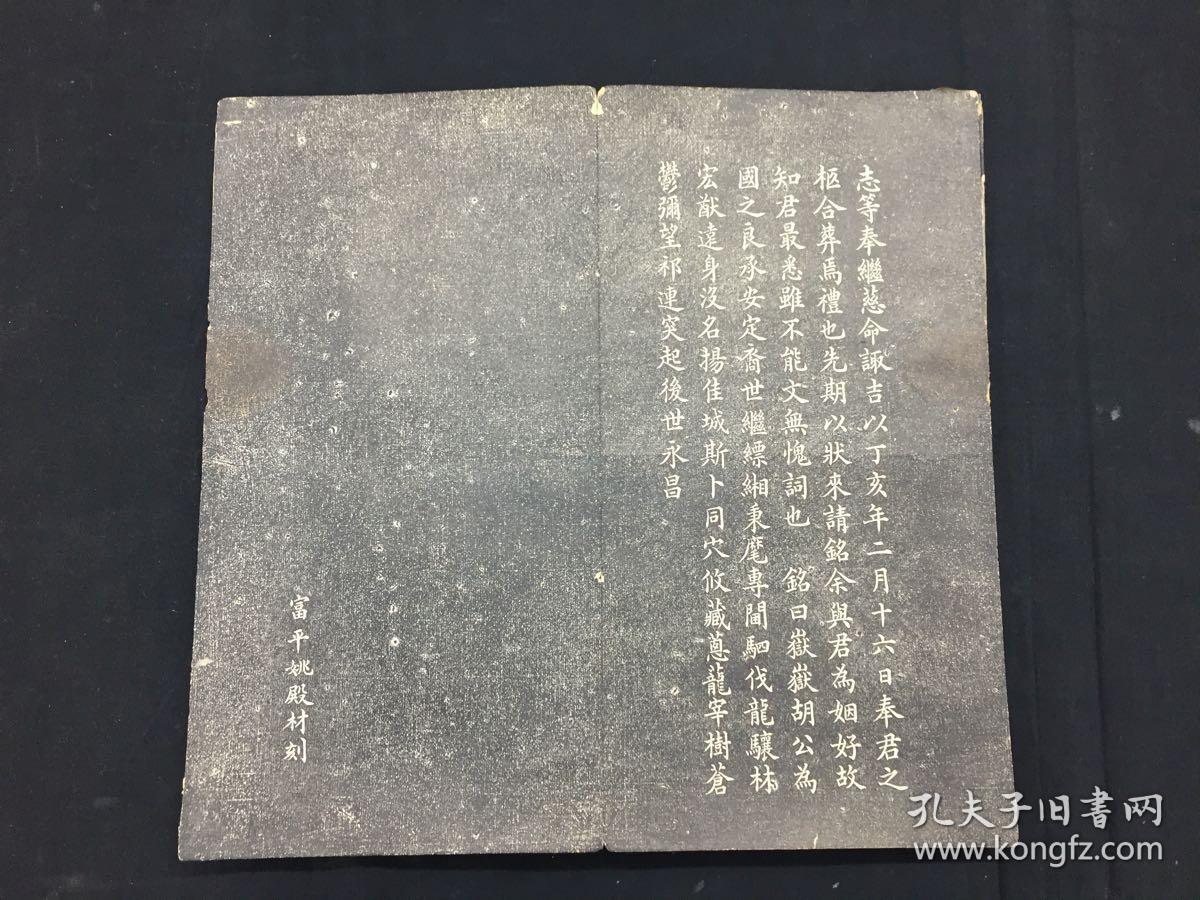 志等奉繼慈命諏吉以丁亥年二月十六日奉君之
柩合葬焉禮也先期以狀來請銘余與君為姻好故
知君最悉雖不能文無愧詞也 銘曰嶽嶽胡公為
國之良承安定裔世繼縹緗秉麾專閫駟伐龍驤
宏猷遠身沒名揚佳城斯卜同穴攸藏蔥蘢宰樹蒼
鬱彌望祁連突起後世永昌
富平姚殿材刻
孔夫子旧书网
www.kongfz.com